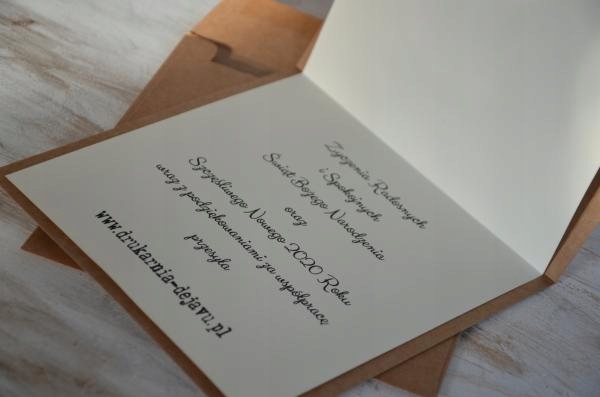 Życzenia Radosnych
i Spokojnych
Świąt Bożego Narodzenia
oraz
Szczęśliwego Nowego 2020 Roku
wraz z podziękowaniami za współpracę
przesyła
www.drukarnia-dejavu.pl